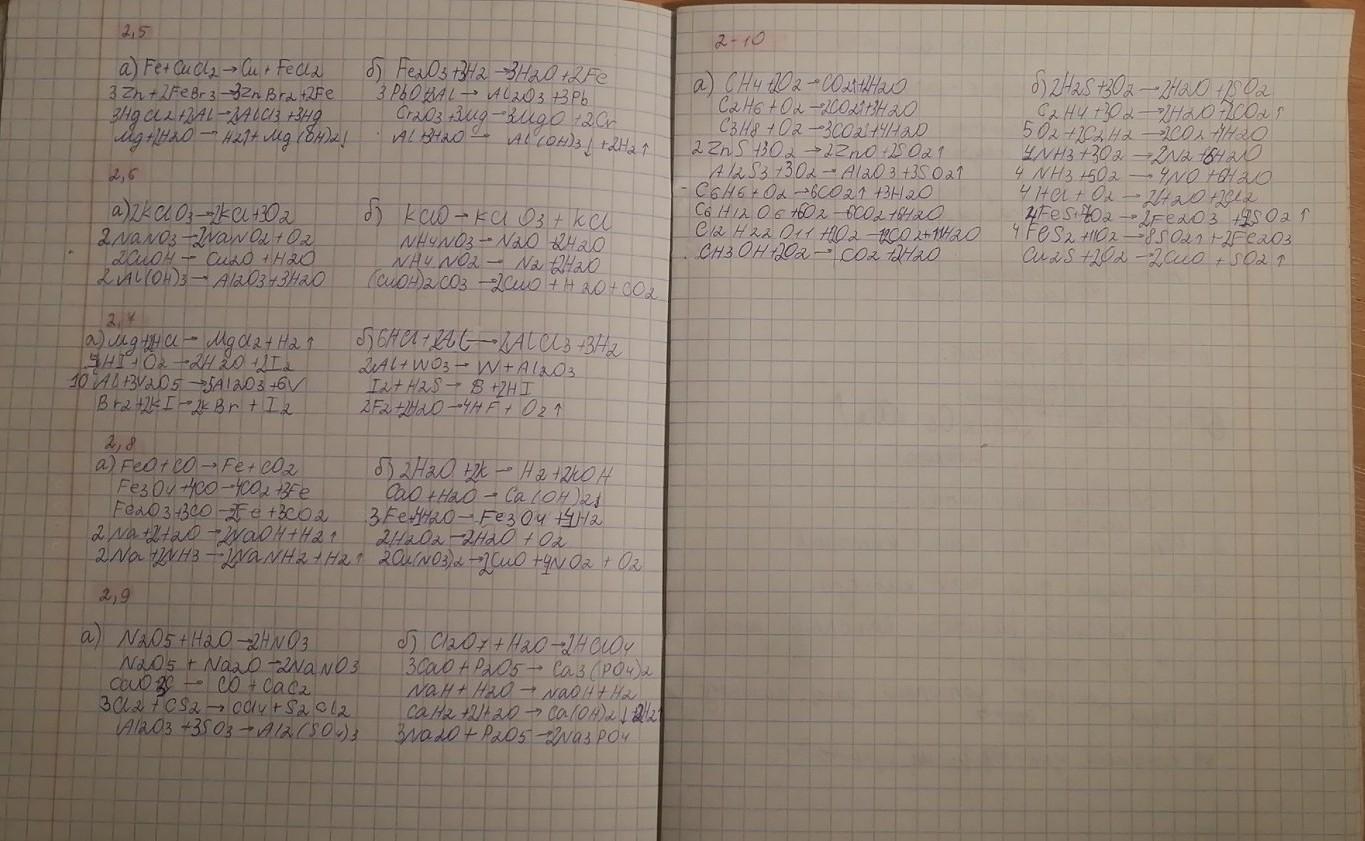 2,5
а) Fe+CuCl2→Cu+FeCl2
3Zn+2FeBr3→3ZnBr2+2Fe
3HgCl2+2Al→2AlCl3+3Hg
Mg+2H2O→H2↑+Mg(OH)2↓
б) Fe2O3+3H2→3H2O+2Fe
3PbO+2Al→Al2O3+3Pb
Cr2O3+3Mg→3MgO+2Cr
Al+3H2O→Al(OH)3↓+2H2↑
2,6
а) 2KClO3→2KCl+3O2
2NaNO3→2NaNO2+O2
2CuOH→Cu2O+H2O
2Al(OH)3→Al2O3+3H2O
б) KClO→KClO3+KCl
NH4NO3→N2O+2H2O
NH4NO2→N2+2H2O
(CuOH)2CO3→2CuO+H2O+CO2
2,7
а) Mg+2HCl→MgCl2+H2↑
4HI+O2→2H2O+2I2
10Al+3V2O5→5Al2O3+6V
Br2+2KI→2KBr+I2
б) 6HCl+2Al→2AlCl3+3H2
2Al+WO3→W+Al2O3
I2+H2S→ +2HI
2F2+2H2O→4HF+O2↑
2,8
а) FeO+CO→Fe+CO2
Fe3O4+4CO→4CO2+3Fe
Fe2O3+3CO→2Fe+3CO2
2Na+2H2O→2NaOH+H2↑
2Na+2NH3→2NaNH2+H2↑
б) 2H2O+2K→H2+2KOH
CaO+H2O→Ca(OH)2↓
3Fe+4H2O→Fe3O4+4H2
2H2O2→2H2O+O2
2Cu(NO3)2→2CuO+4NO2+O2
2,9
а) N2O5+H2O→2HNO3
N2O5+Na2O→2NaNO3
CaO+3C→CO+CaC2
3Cl2+CS2→CCl4+S2Cl2
Al2O3+3SO3→Al2(SO4)3
б) Cl2O7+H2O→2HClO4
3CaO+P2O5→Ca3(PO4)2
NaH+H2O→NaOH+H2
CaH2+2H2O→Ca(OH)2↓+2H2↑
3Na2O+P2O5→2Na3PO4
2-10
а) CH4+2O2→CO2↑+2H2O
C2H6+O2→2CO2↑+3H2O
C3H8+O2→3CO2↑+4H2O
2ZnS+3O2→2ZnO+2SO2↑
Al2S3+3O2→Al2O3+3SO2↑
C6H6+O2→6CO2↑+3H2O
C6H12O6+6O2→6CO2+6H2O
C12H22O11+12O2→12CO2+11H2O
CH3OH+2O2→CO2+2H2O
б) 2H2S+3O2→2H2O+2SO2
C2H4+3O2→2H2O+2CO2↑
5O2+2C2H2→ CO2+ H2O
4NH3+3O2→2N2+6H2O
4NH3+5O2→4NO+6H2O
4HCl+O2→2H2O+2Cl2
4FeS+7O2→2Fe2O3+4SO2↑
4FeS2+11O2→8SO2↑+2Fe2O3
Cu2S+2O2→2CuO+SO2↑